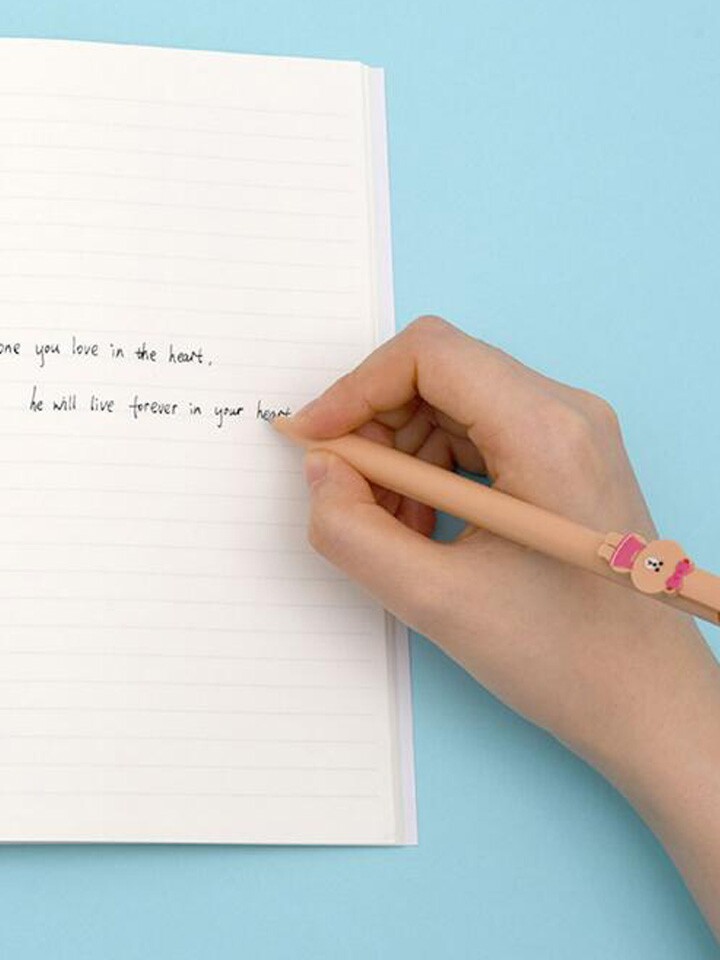 one you love in the heart,
he will live forever in your heart